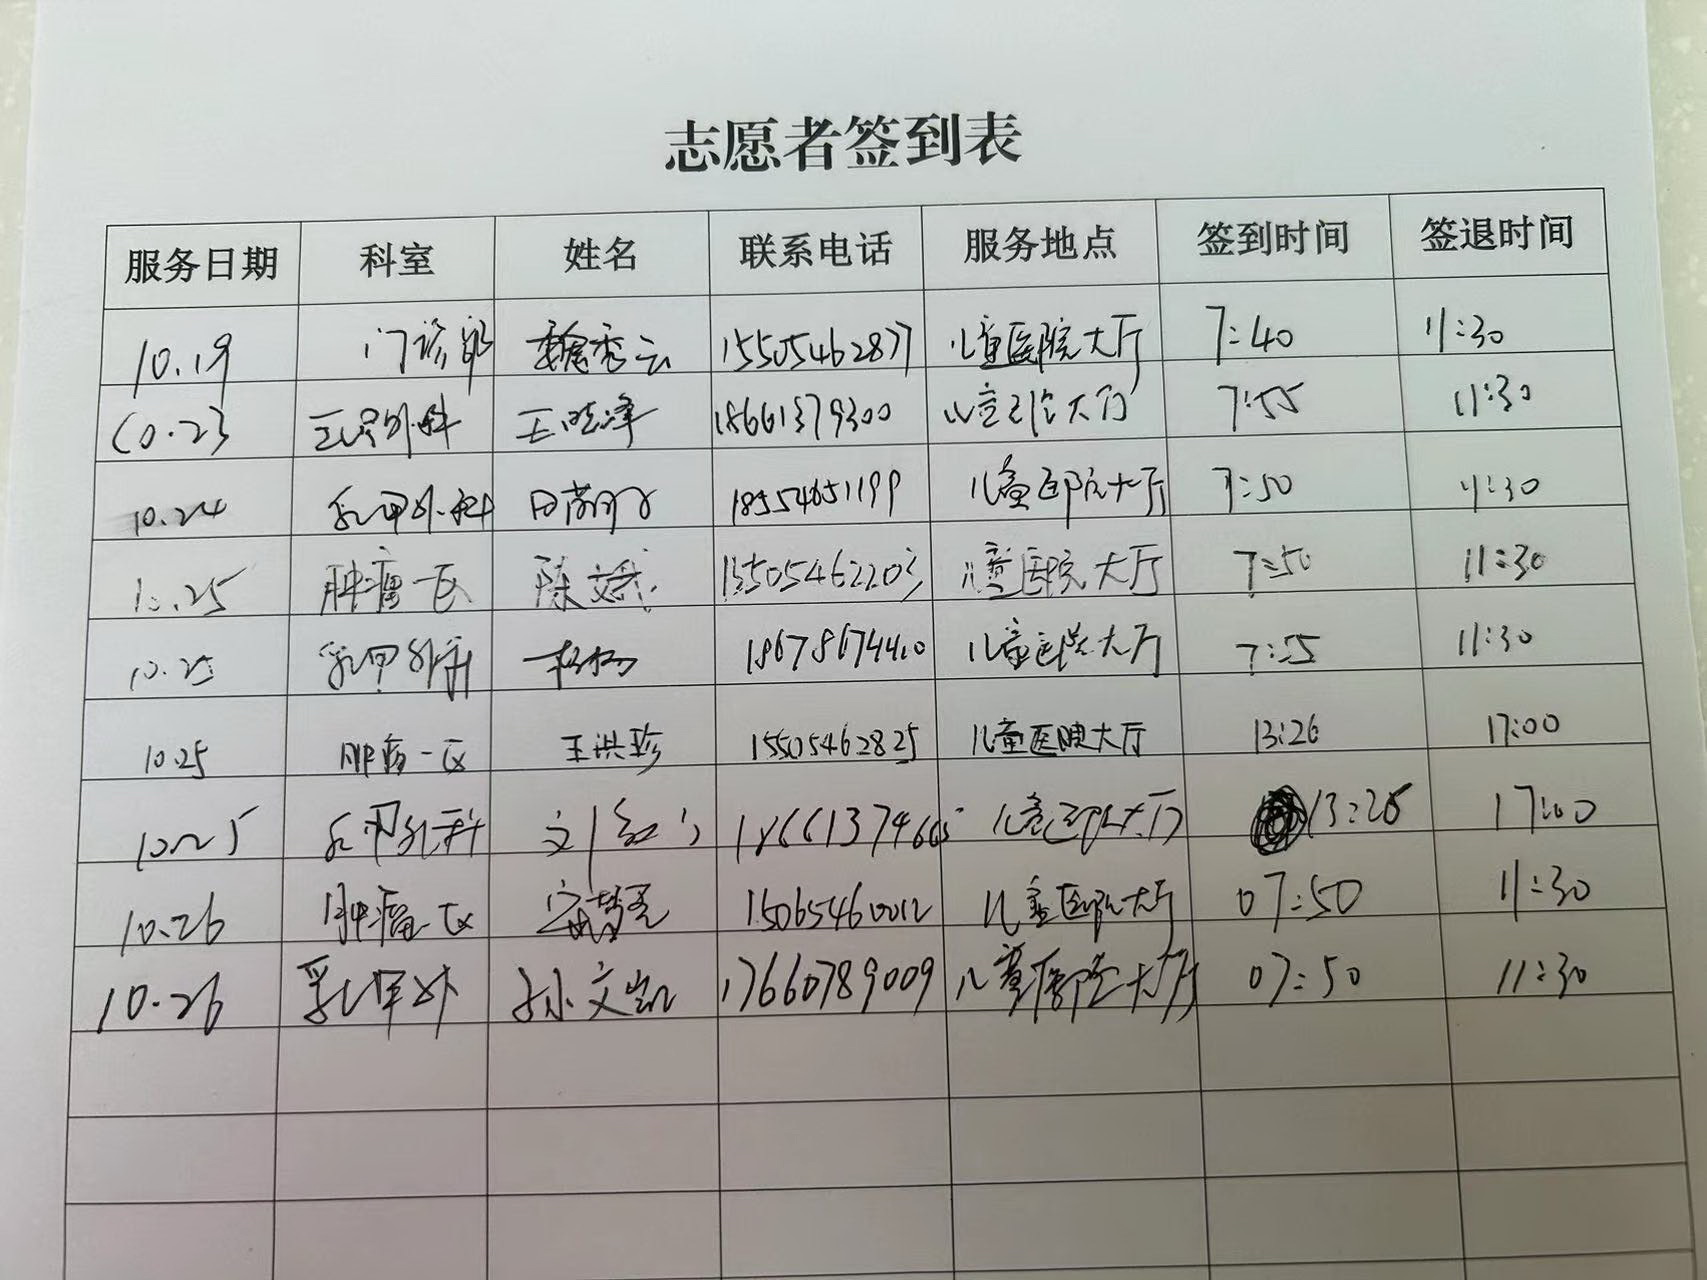 志愿者签到表
服务日期 科室 姓名 联系电话 服务地点 签到时间 签退时间
10.19 门诊部 魏秀云 15505462877 儿童医院大厅 7:40 11:30
10.23 外科 王晓泽 18661379300 儿童医院大厅 7:55 11:30
10.24 乳甲外科 18554651199 儿童医院大厅 7:50 11:30
10.25 肿瘤一区 陈文娥 15505462203 儿童医院大厅 7:50 11:30
10.25 乳甲外科 杨杨 18678674410 儿童医院大厅 7:55 11:30
10.25 肿瘤一区 王洪珍 15505462825 儿童医院大厅 13:26 17:00
10.25 乳甲外科 18661374665 儿童医院大厅 13:26 17:00
10.26 肿瘤一区 15065460012 儿童医院大厅 07:50 11:30
10.26 乳甲外 孙文凯 17660789009 儿童医院大厅 07:50 11:30